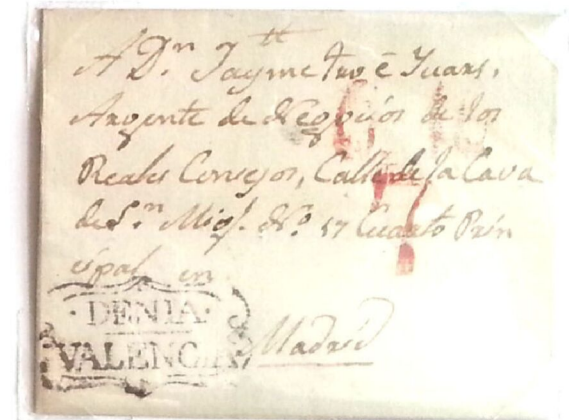 A Dn. Jayme
Argente de Negocios de los
Reales Consejos, Calle de la Cava
de Sn. Migl. No. 17 Cuarto Prin
cipal en
Madrid
7
·DENIA·
VALENCIA